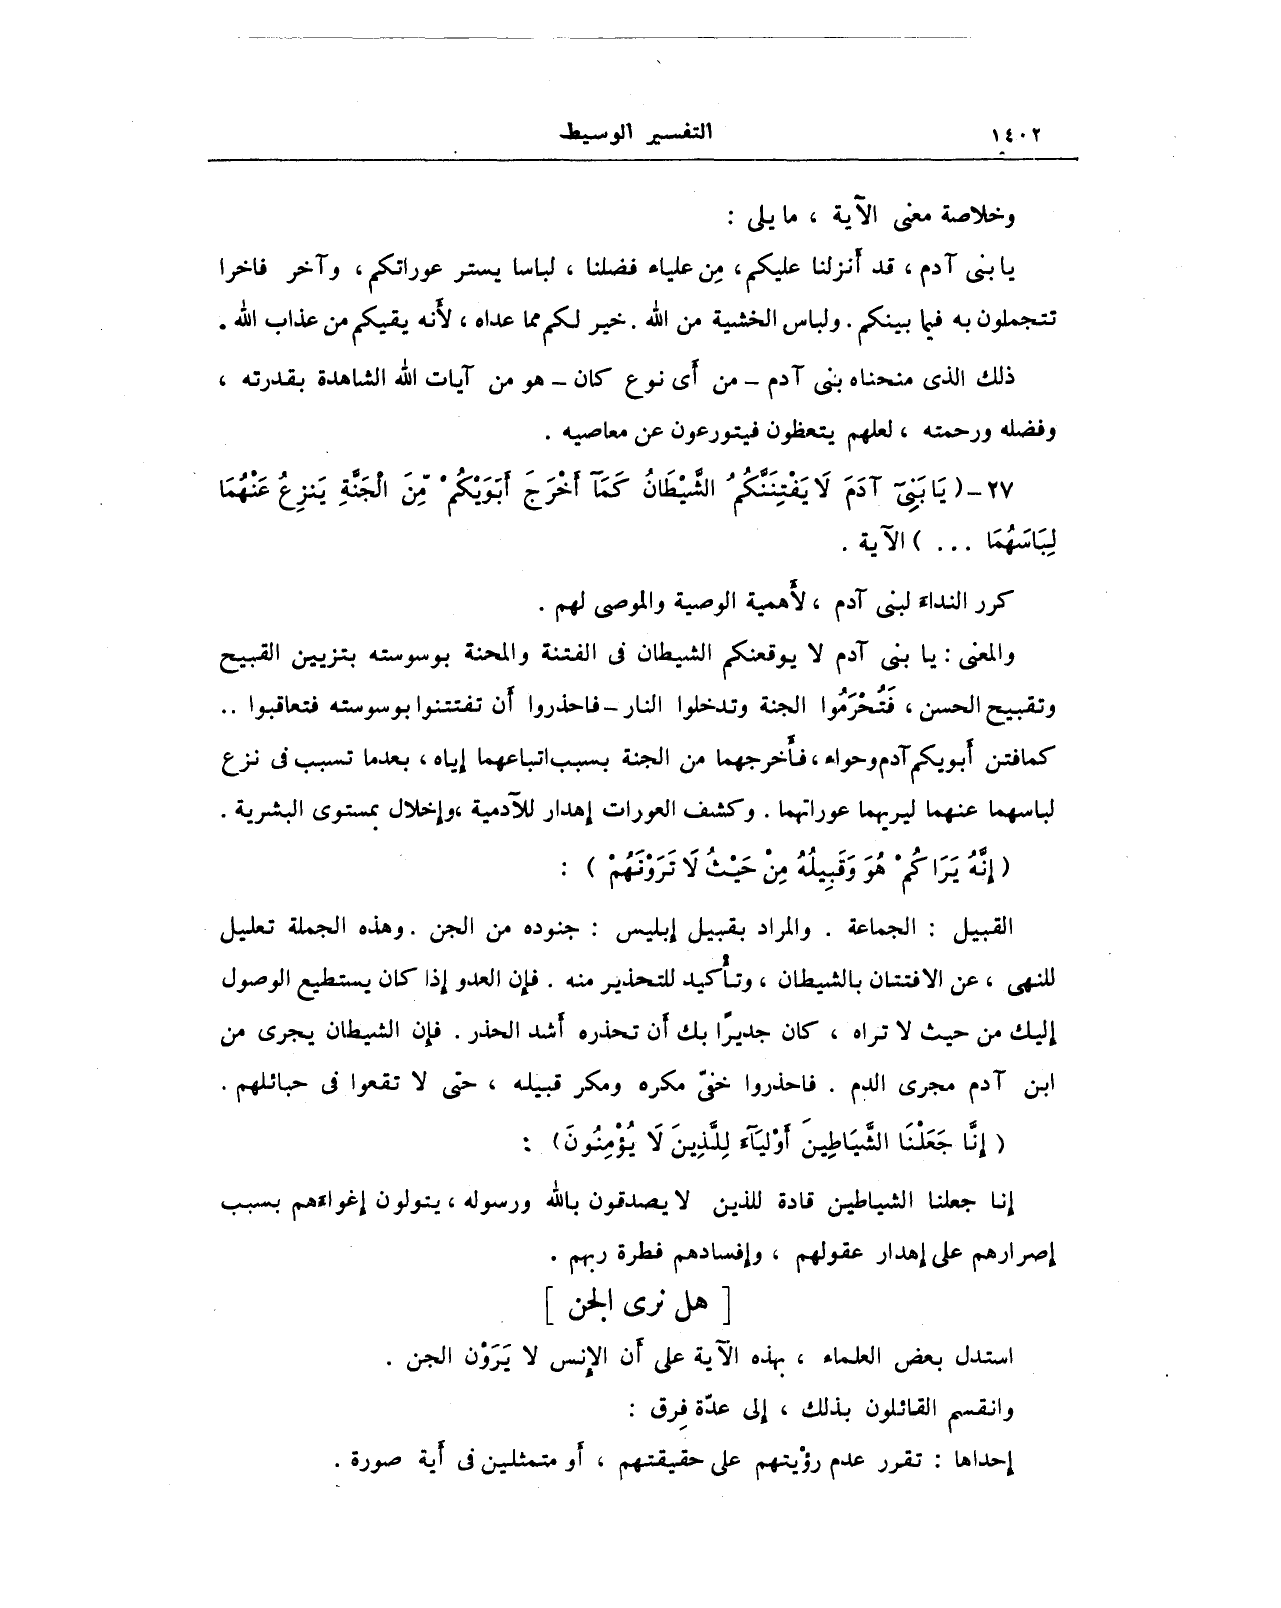 ١٤٠٢ التفسير الوسيط
وخلاصة معنى الآية ، ما يلى :
يا بنى آدم ، قد أنزلنا عليكم ، مِن علياء فضلنا ، لباسا يستر عوراتكم ، وآخر فاخرا
تتجملون به فيما بينكم . ولباس الخشية من الله . خير لكم مما عداه ، لأنه يقيكم من عذاب الله .
ذلك الذى منحناه بنى آدم – من أى نوع كان – هو من آيات الله الشاهدة بقدرته ،
وفضله ورحمته ، لعلهم يتعظون فيتورعون عن معاصيه .
٢٧ – ( يَا بَنِىٓ آدَمَ لَا يَفْتِنَنَّكُمُ الشَّيْطَانُ كَمَآ أَخْرَجَ أَبَوَيْكُمْ مِّنَ الْجَنَّةِ يَنزِعُ عَنْهُمَا
لِبَاسَهُمَا ... ) الآية .
كرر النداء لبنى آدم ، لأهمية الوصية والموصى لهم .
والمعنى : يا بنى آدم لا يوقعنكم الشيطان فى الفتنة والمحنة بوسوسته بتزيين القبيح
وتقبيح الحسن ، فَتُحْرَمُوا الجنة وتدخلوا النار – فاحذروا أن تفتتنوا بوسوسته فتعاقبوا ..
كما فتن أبويكم آدم وحواء ، فأخرجهما من الجنة بسبب اتباعهما إياه ، بعدما تسبب فى نزع
لباسهما عنهما ليريهما عوراتهما . وكشف العورات إهدار للآدمية ، وإخلال بمستوى البشرية .
( إِنَّهُ يَرَاكُمْ هُوَ وَقَبِيلُهُ مِنْ حَيْثُ لَا تَرَوْنَهُمْ ) :
القبيل : الجماعة . والمراد بقبيل إبليس : جنوده من الجن . وهذه الجملة تعليل
للنهى ، عن الافتتان بالشيطان ، وتأكيد للتحذير منه . فإن العدو إذا كان يستطيع الوصول
إليك من حيث لا تراه ، كان جديرًا بك أن تحذره أشد الحذر . فإن الشيطان يجرى من
ابن آدم مجرى الدم . فاحذروا خفىّ مكره ومكر قبيله ، حتى لا تقعوا فى حبائلهم .
( إِنَّا جَعَلْنَا الشَّيَاطِينَ أَوْلِيَآءَ لِلَّذِينَ لَا يُؤْمِنُونَ ) :
إنا جعلنا الشياطين قادة للذين لا يصدقون بالله ورسوله ، يتولون إغواءهم بسبب
إصرارهم على إهدار عقولهم ، وإفسادهم فطرة ربهم .
[ هل نرى الجن ]
استدل بعض العلماء ، بهذه الآية على أن الإنس لا يَرَوْن الجن .
وانقسم القائلون بذلك ، إلى عدّة فِرق :
إحداها : تقرر عدم رؤيتهم على حقيقتهم ، أو متمثلين فى أية صورة .